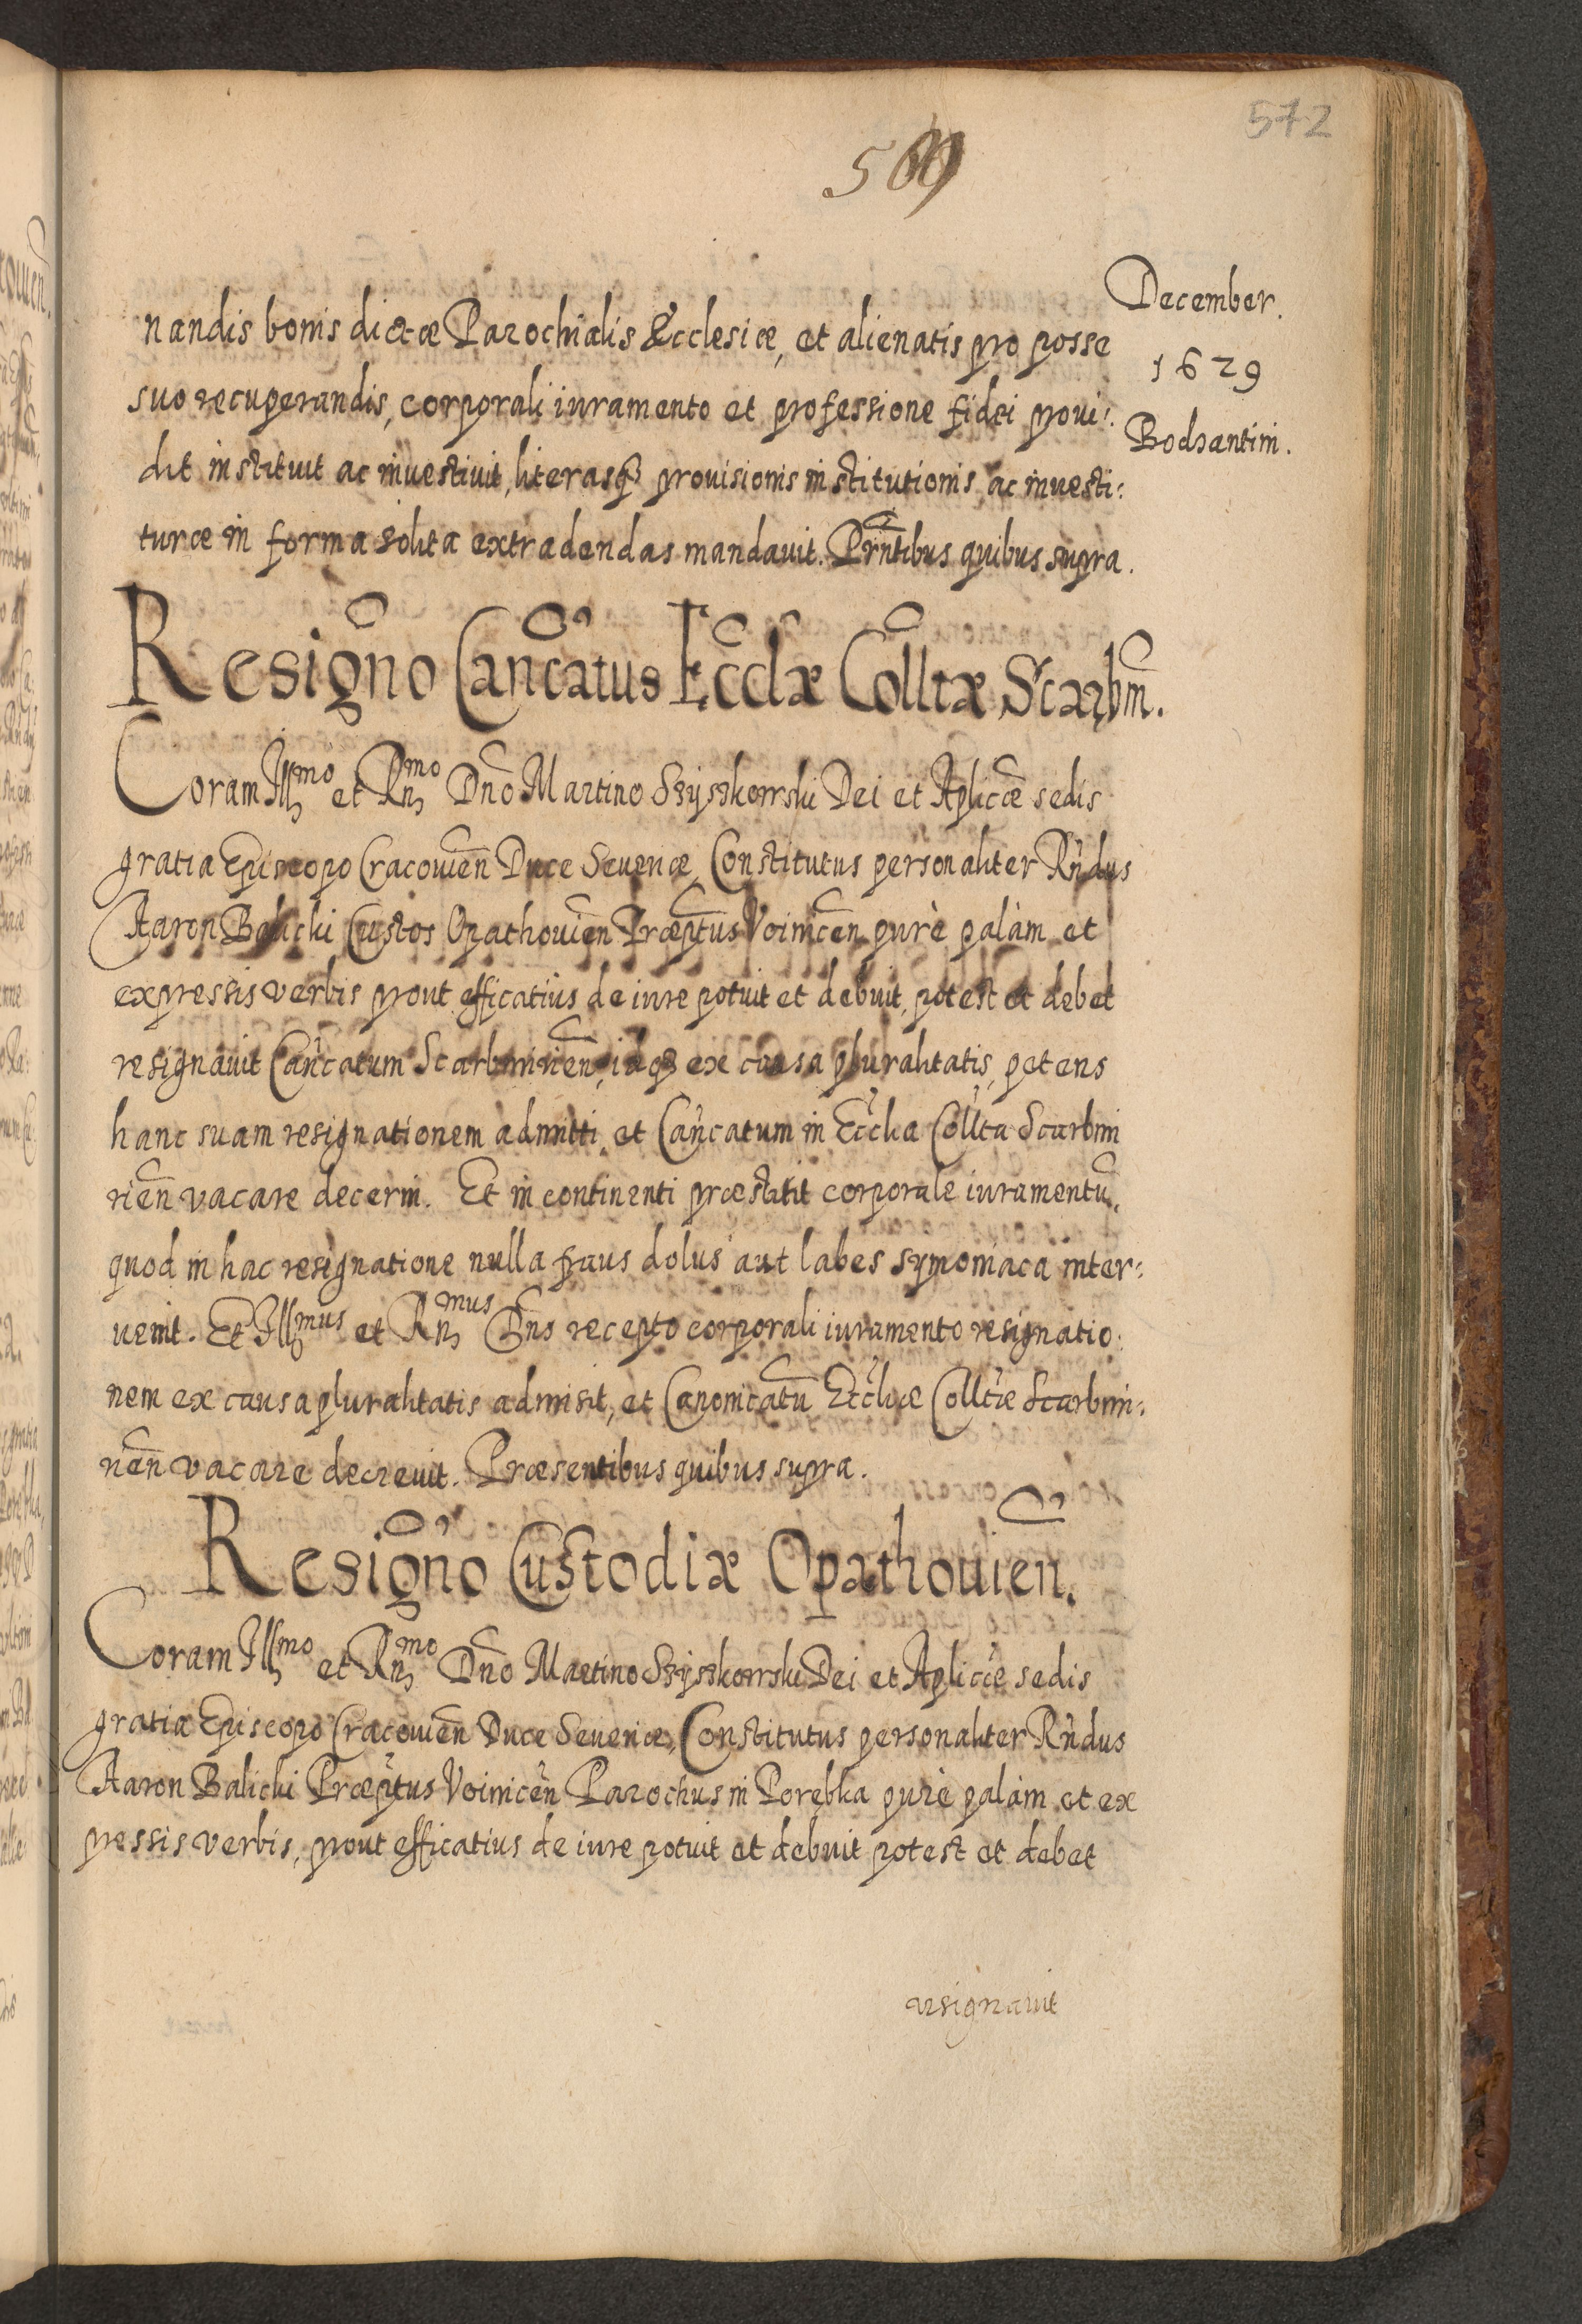 572
569
December.
1629
Bodzantini.
nandis bonis dictæ Parochialis Ecclesiæ, et alienatis pro posse
suo recuperandis, corporali iuramento et professione fidei proui:
dit instituit ac inuestiuit, literasq3 prouisionis institutionis ac inuesti:
turæ in forma solita extradendas mandauit. Prñtibus quibus supra.
Resigno Cañcatus Ecclæ Colltæ Scarbm̃.
Coram Illmo et Rñmo Dño Martino Szyszkowski Dei et Aplicæ sedis
gratia Episcopo Cracouien̄ Duce Seueriæ, Constitutus personaliter Rñdus
Aaron Balicki Custos Opathouien̄ Præptus Voinicen̄ purè palàm et
expressis verbis prout efficatius de iure potuit et debuit, potest et debet
resignauit Cañcatum Scarbmirien̄, idq3 ex causa pluralitatis, petens
hanc suam resignationem admitti, et Cañcatum in Ecclia Collta Scarbmi
rien̄ vacare decerni. Et in continenti præstitit corporale iuramentū,
quod in hac resignatione nulla fraus dolus aut labes symoniaca inter:
uenit. Et Illmus et Rñmus Dñs recepto corporali iuramento resignatio:
nem ex causa pluralitatis admisit, et Canonicatū Eccliæ Colltæ Scarbmi:
rien̄ vacare decreuit. Præsentibus quibus supra.
Resigno Custodiæ Opathouien̄.
Coram Illmo et Rñmo Dño Martino Szyszkowski Dei et Aplicæ sedis
gratia Episcopo Cracouien̄ Duce Seueriæ, Constitutus personaliter Rñdus
Aaron Balicki Præptus Voinicen̄ Parochus in Porębka purè palàm et ex
pressis verbis, prout efficatius de iure potuit et debuit potest et debet
resignauit